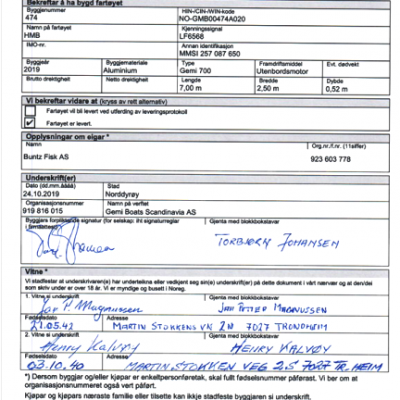 Bekreftar å ha bygd fartøyet
Byggjenummer HIN-/CIN-/WIN-kode
474 NO-GMB00474A020
Namn på fartøyet Kjenningssignal
HMB LF6568
IMO-nr. Annan identifikasjon
MMSI 257 087 650
Byggjeår Byggjemateriale Type Framdriftsmiddel Evt. dødvekt
2019 Aluminium Gemi 700 Utenbordsmotor
Brutto drektigheit Netto drektigheit Lengde Bredde Dybde
7,00 m 2,50 m 0,52 m
Vi bekreftar vidare at (kryss av rett alternativ)
Fartøyet vil bli levert ved utferding av leveringsprotokoll
Fartøyet er levert.
Opplysningar om eigar *
Namn Org.nr./f.nr. (11 siffer)
Buntz Fisk AS 923 603 778
Underskrift(er)
Dato (dd.mm.åååå) Stad
24.10.2019 Norddyrøy
Organisasjonsnummer Namn på verftet
919 816 015 Gemi Boats Scandinavia AS
Byggjars forpliktande signatur (for selskap: iht signaturreglar i føretaket) Gjenta med blokkbokstavar
TORBJØRN JOHANSEN
Vitne *
Vi stadfester at underskrivaren(e) har underteikna eller vedkjent seg sin(e) underskrift(er) på dette dokument i vårt nærvær og at den/dei
som skriv under er over 18 år. Vi er myndige og busett i Noreg.
1. Vitne si underskrift Gjenta med blokkbokstavar
Jan P. Magnussen JAN PETTER MAGNUSSEN
Fødselsdato Adresse
21.05.42 MARTIN STOKKENS VN 2N 7027 TRONDHEIM
2. Vitne si underskrift Gjenta med blokkbokstavar
Henry Kalvøy HENRY KALVØY
Fødselsdato Adresse
03.10.40 MARTIN STOKKEN VEG 2S 7027 TR.HEIM
*) Dersom byggjar og/eller kjøpar er enkeltpersonføretak, skal fullt fødselsnummer påførast. Vi ber om at
organisasjonsnummeret også vert påført.
Kjøpar og kjøpars næraste familie eller tilsette kan ikkje stadfeste byggjaren si underskrift.